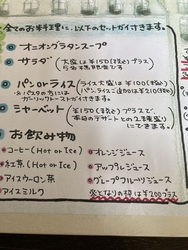 全てのお料理に、以下のセットが付きます。
オニオングラタンスープ
サラダ (大盛は¥150(税込)プラス
パン or ライス (ライス大盛は¥100(税込)
パン、ライス追加は¥210(税込)
※パスタの方には
ガーリックトーストが付きます。
シャーベット (¥150(税込)プラスで
本日のデザートとの2種盛り
にできます。
お飲み物
コーヒー (Hot or Ice)
オレンジジュース
紅茶 (Hot or Ice)
アップルジュース
アイスウーロン茶
グレープフルーツジュース
アイスミルク